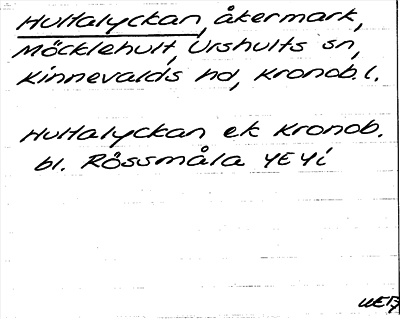 Hultalyckan, åkermark,
Möcklehult, Urshults sn,
Kinnevalds hd, Kronob.l.
Hultalyckan ek Kronob.
bl. Rössmåla 4E4i